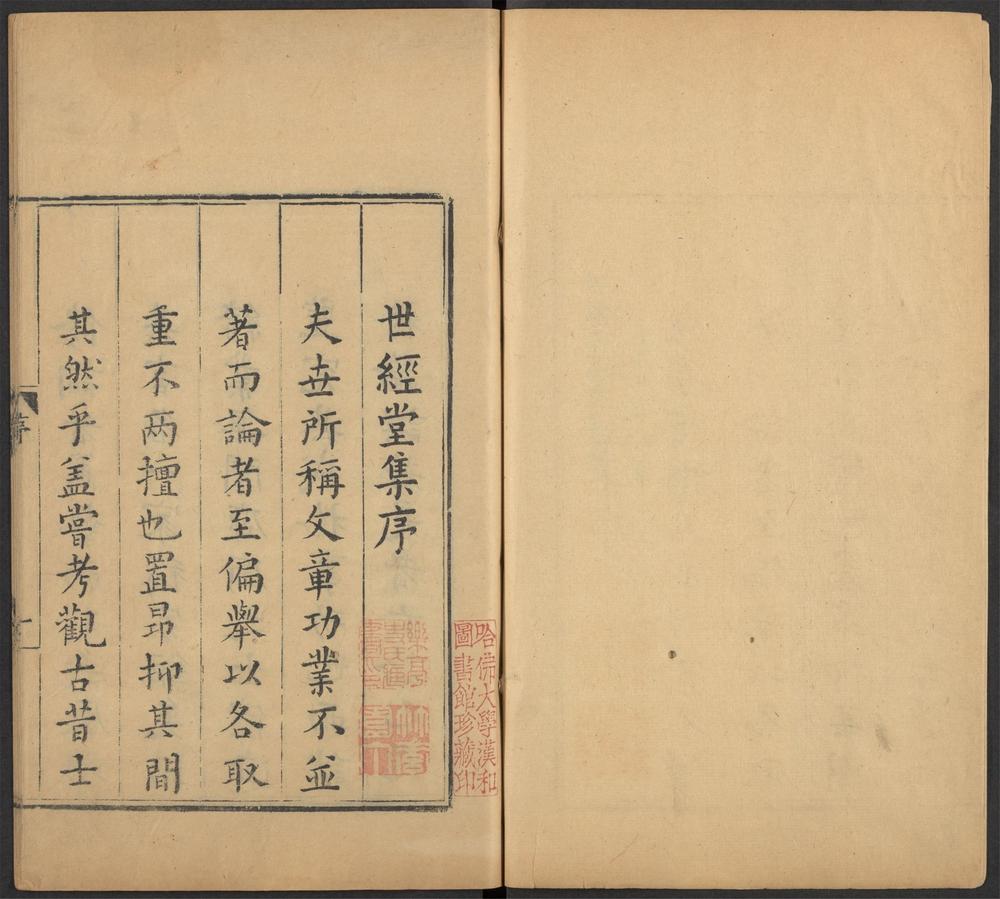 世經堂集序
夫世所稱文章功業不並
著而論者至偏舉以各取
重不兩擅也置昂抑其間
其然乎盖嘗考觀古昔士
序
一
哈佛大學漢和
圖書館珍藏印